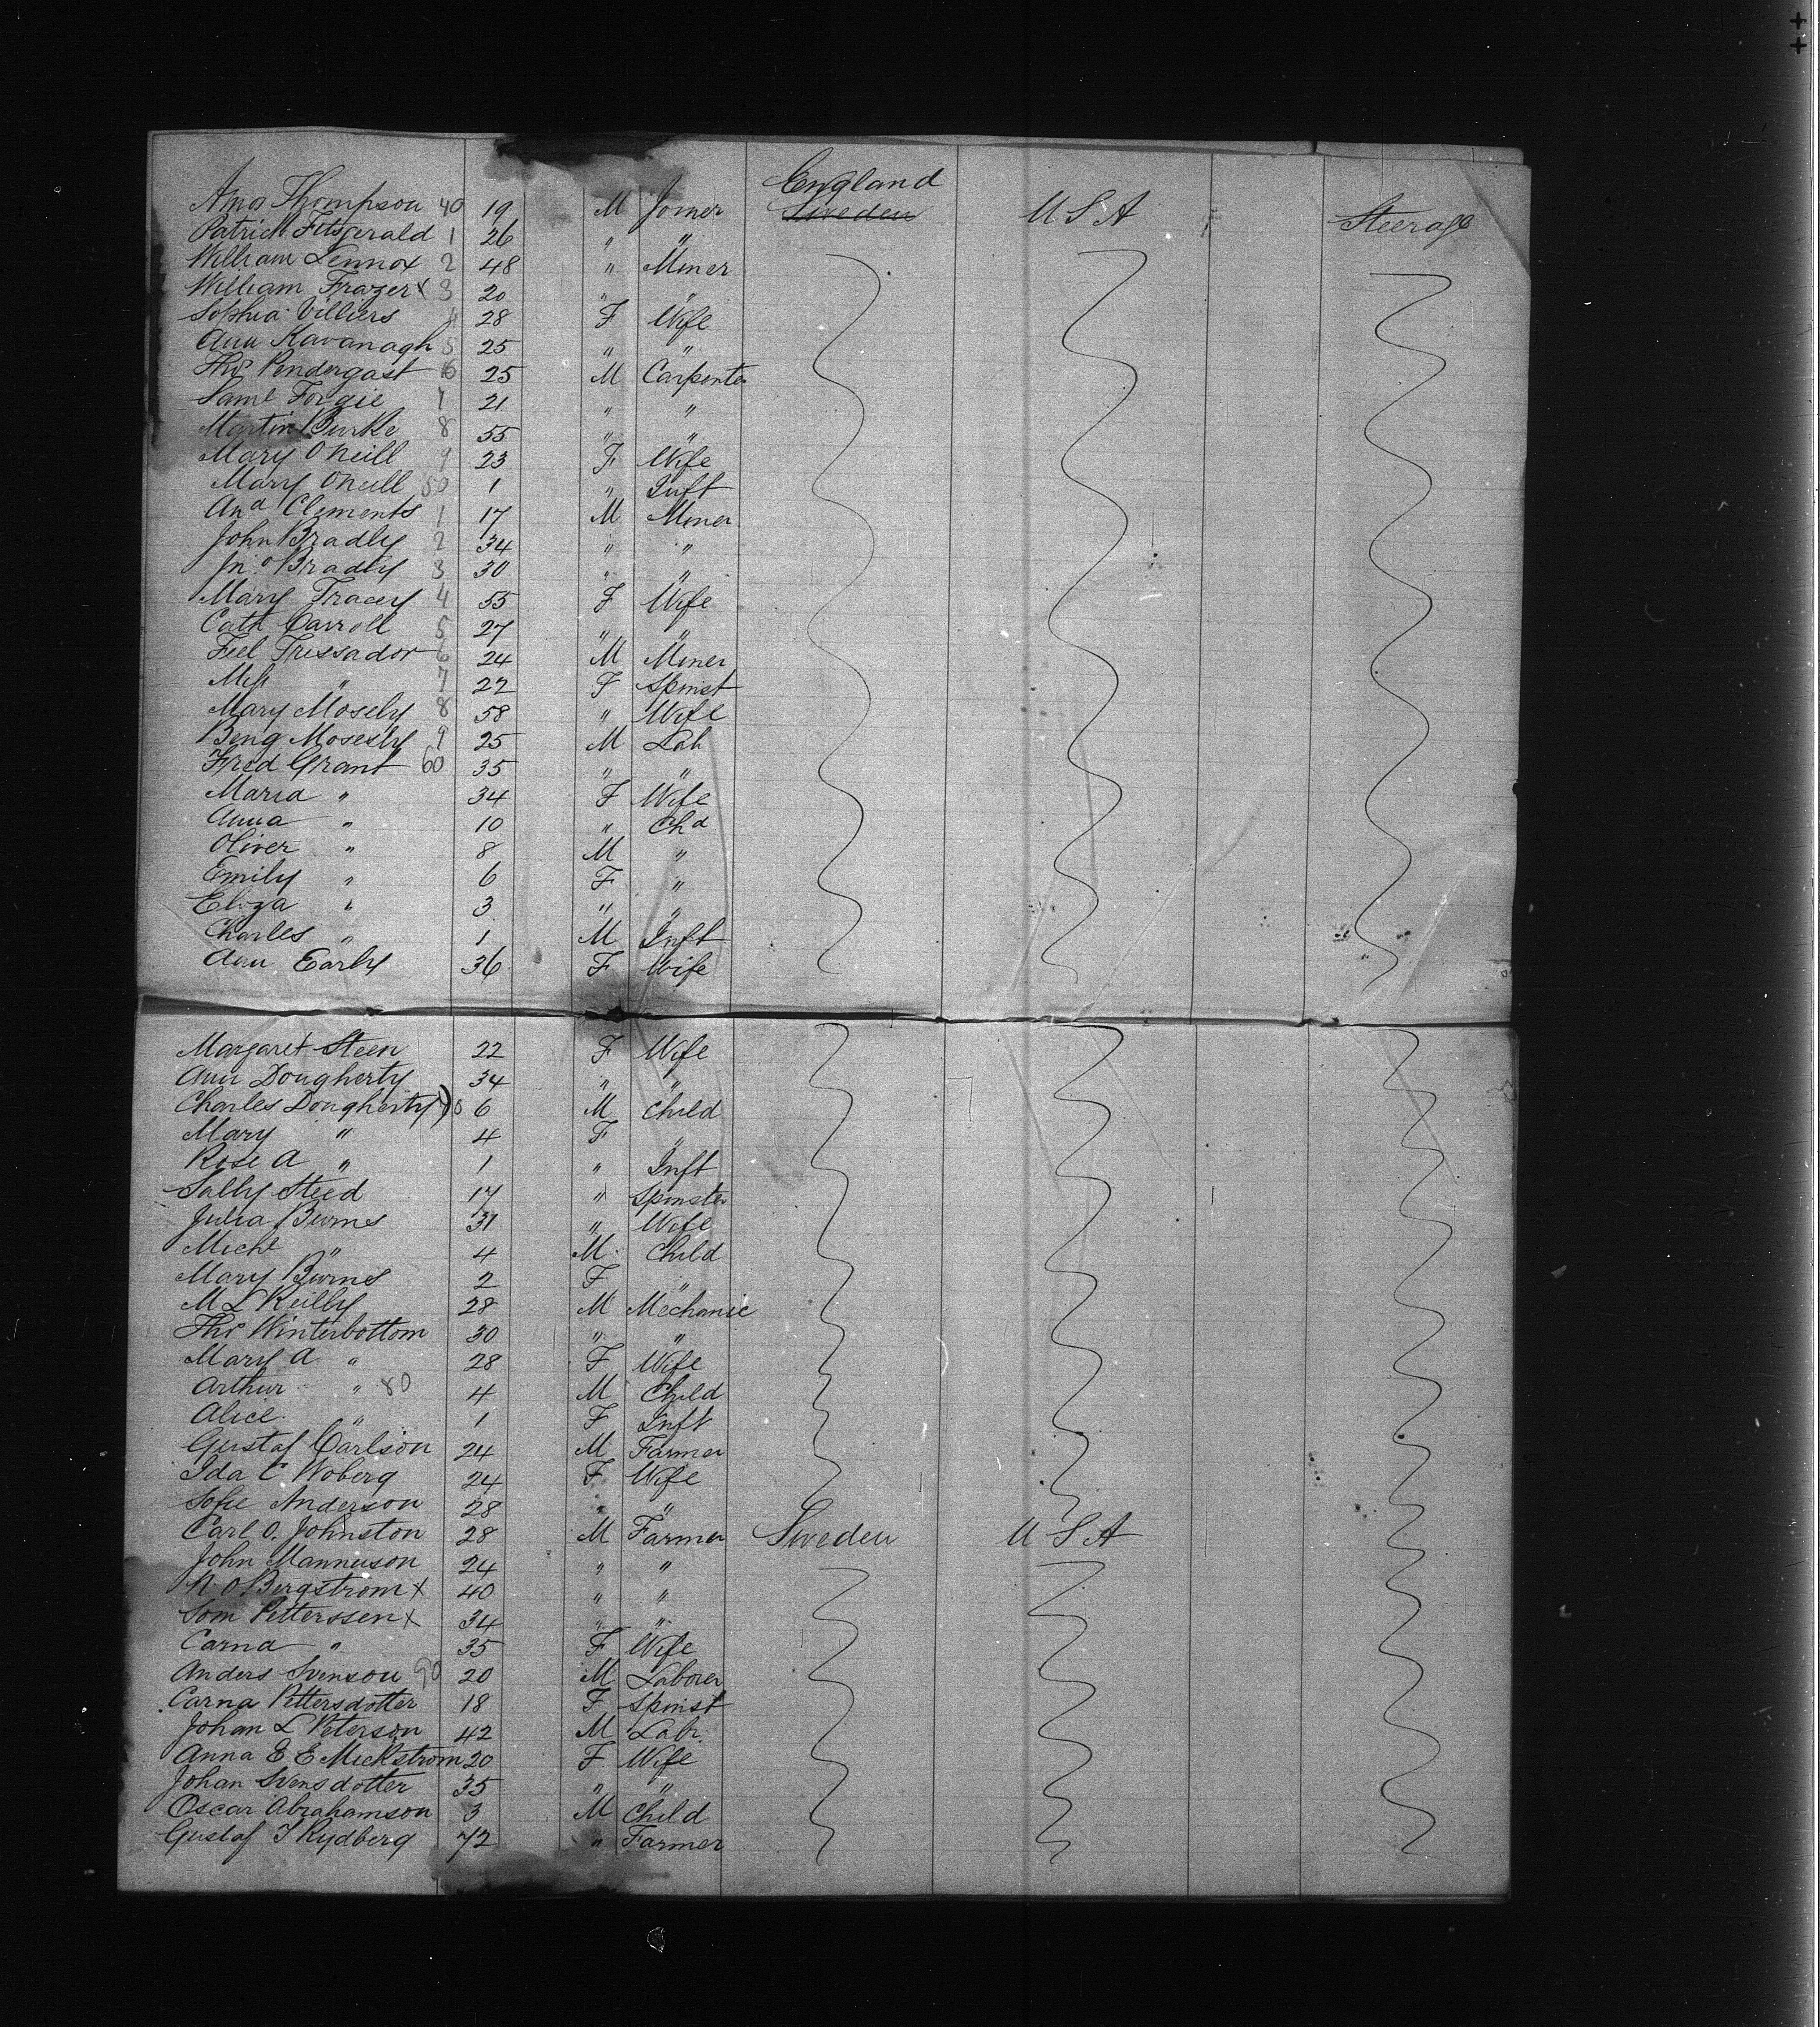 England
Amos Thompson 40 19 M Joiner Sweden USA Steerage
Patrick Fitsgerald 1 26 " "
William Lennox 2 48 " Miner
William Frazer x 3 20 " "
Sophia Villiers 4 28 F Wife
Ann Kavanagh 5 25 " "
Thos Pendergast 6 25 M Carpenter
Saml Forgie 7 21 " "
Martin Burke 8 55 " "
Mary O'Neill 9 23 F Wife
Mary O'Neill 50 1 " Inft
And Clements 1 17 M Miner
John Bradly 2 34 " "
Jno Bradly 3 30 " "
Mary Tracey 4 55 F Wife
Cath Carroll 5 27 " "
Feel Tressador 6 24 M Miner
Miss " 7 22 F Spinst
Mary Mosely 8 58 " Wife
Benj Mosesly 9 25 M Lab
Fred Grant 60 35 " "
Maria " 34 F Wife
Anna " 10 " Chd
Oliver " 8 M "
Emily " 6 F "
Eliza " 3 " "
Charles " 1 M Inft
Ann Early 36 F Wife
Margaret Steen 22 F Wife
Ann Dougherty 34 " "
Charles Dougherty 70 6 M Child
Mary " 4 F "
Rose A " 1 " Inft
Sally Steed 17 " Spinster
Julia Burns 31 " Wife
Michl " 4 M Child
Mary Burns 2 F "
M L Reilly 28 M Mechanic
Thos Winterbottom 30 " "
Mary A " 28 F Wife
Arthur " 80 4 M Child
Alice " 1 F Inft
Gustaf Carlson 24 M Farmer
Ida C Woberg 24 F Wife
Sofie Anderson 28 " "
Carl O. Johnston 28 M Farmer Sweden USA
John Mannuson 24 " "
N. O Bergstrom x 40 " "
Som Petterssen x 34 " "
Carna " 35 F Wife
Anders Svenson 90 20 M Laborer
Carna Pettersdotter 18 F Spinst
Johan L Peterson 42 M Labr.
Anna E E Mickstrom 20 F Wife
Johan Svensdotter 35 " "
Oscar Abrahamson 3 M Child
Gustaf T Rydberg 72 " Farmer